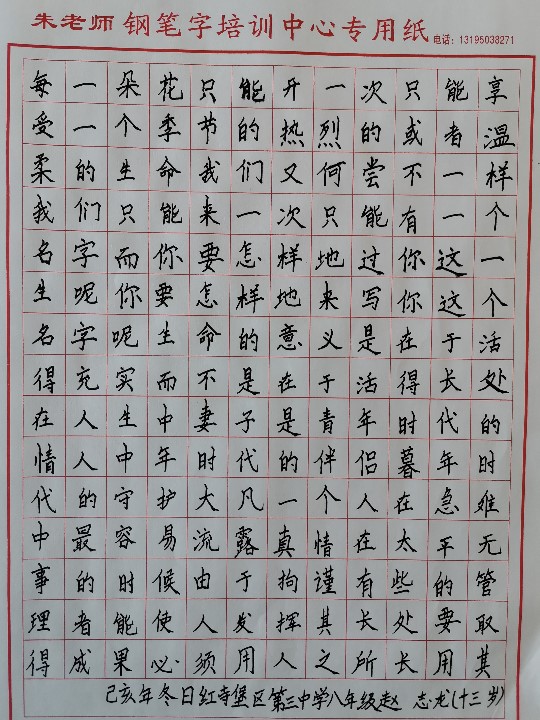 朱老师钢笔字培训中心专用纸 电话：13195038271
每一朵花只能开一次只能享
受一个季节的热烈的或者温
柔的生命我们又何尝不一样
我们只能来一次只能有一个
名字而你要怎样地过你这一
生呢你要怎样地来写你这个
名字呢生命的意义是在于活
得充实而不是在于活得长处
在人生中妻子是青年时代的
情人中年时代的伴侣暮年时
代的守护大凡一个人在急难
中最容易流露真情在太平无
事的时候由于拘谨有些的管
理者能使人发挥其长处要取
得成果必须用人之所长用其
己亥年冬日红寺堡区第三中学八年级赵志龙(十三岁)